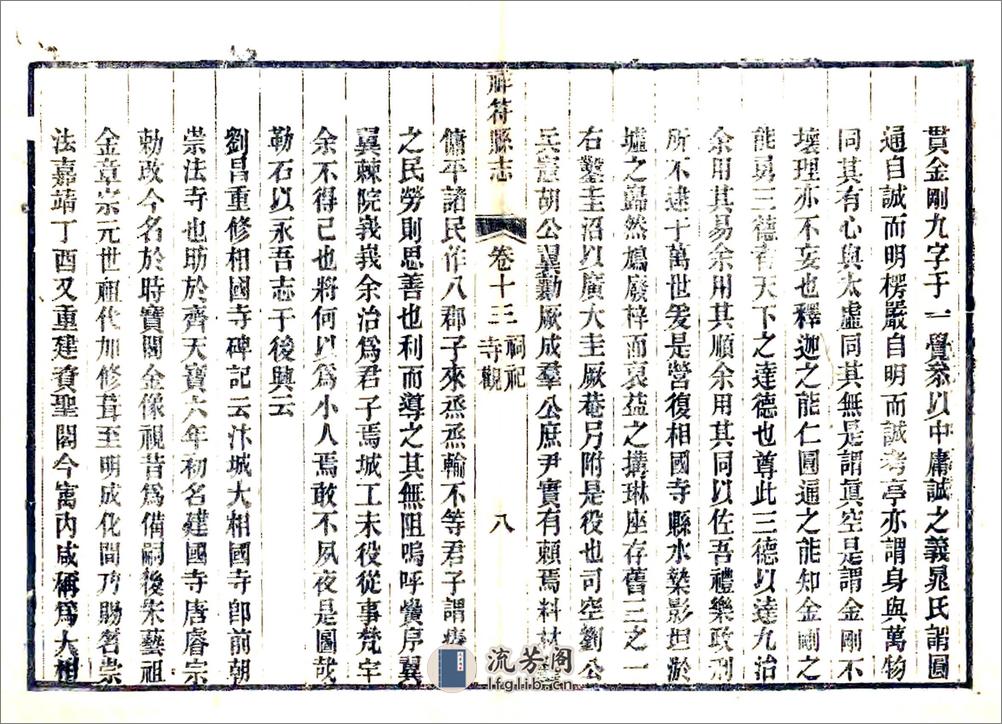 貫金剛九字于一覺叅以中庸誠之義晁氏謂圓
通自誠而明楞嚴自明而誠考亭亦謂身與萬物
同其有心與太虛同其無是謂眞空是謂金剛不
壞理亦不妄也釋迦之能仁圓通之能知金剛之
能勇三德有天下之達德也尊此三德以達九治
余用其易余用其順余用其同以佐吾禮樂政刑
所不逮于萬世爰是營復相國寺縣水槷影坦淤
墟之巋然鳩廢梓而裒益之搆琳座存舊三之一
右鑿圭沼以廣大圭厥巷另附是役也司空劉公
兵憲胡公翼勷厥成羣公庶尹實有賴焉料材
傭平諸民作八郡子來烝烝輸不等君子謂
之民勞則思善也利而導之其無阻嗚呼黌序翼
翼棘院峩峩余治爲君子焉城工未役從事梵宇
余不得已也將何以爲小人焉敢不夙夜是圖哉
勒石以永吾志于後與云
劉昌重修相國寺碑記云汴城大相國寺卽前朝
崇法寺也助於齊天寶六年初名建國寺唐睿宗
勅改今名於時寶閣金像視昔爲備嗣後宋藝祖
金章宗元世祖代加修葺至明成化間乃賜名崇
法嘉靖丁酉又重建賚聖閣今寓内咸稱爲大相
祥符縣志
卷十三
祠祀
寺觀
八
流芳阁
lfglib.cn